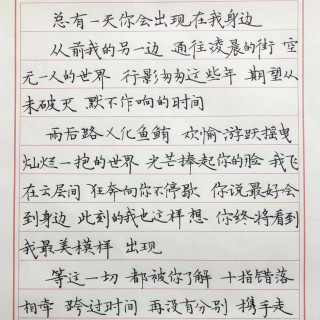 总有一天你会出现在我身边
从前我的另一边 通往凌晨的街 空
无一人的世界 行影匆匆这些年 期望从
未破灭 默不作响的时间
雨后路人化鱼鲔 欢愉游跃摇曳
灿烂一抱的世界 光芒捧起你的脸 我飞
在云层间 狂奔向你不停歇 你说最好会
到身边 此刻的我也这样想 你终将看到
我最美模样 出现
等这一切 都被你了解 十指错落
相牵 跨过时间 再没有分别 携手走